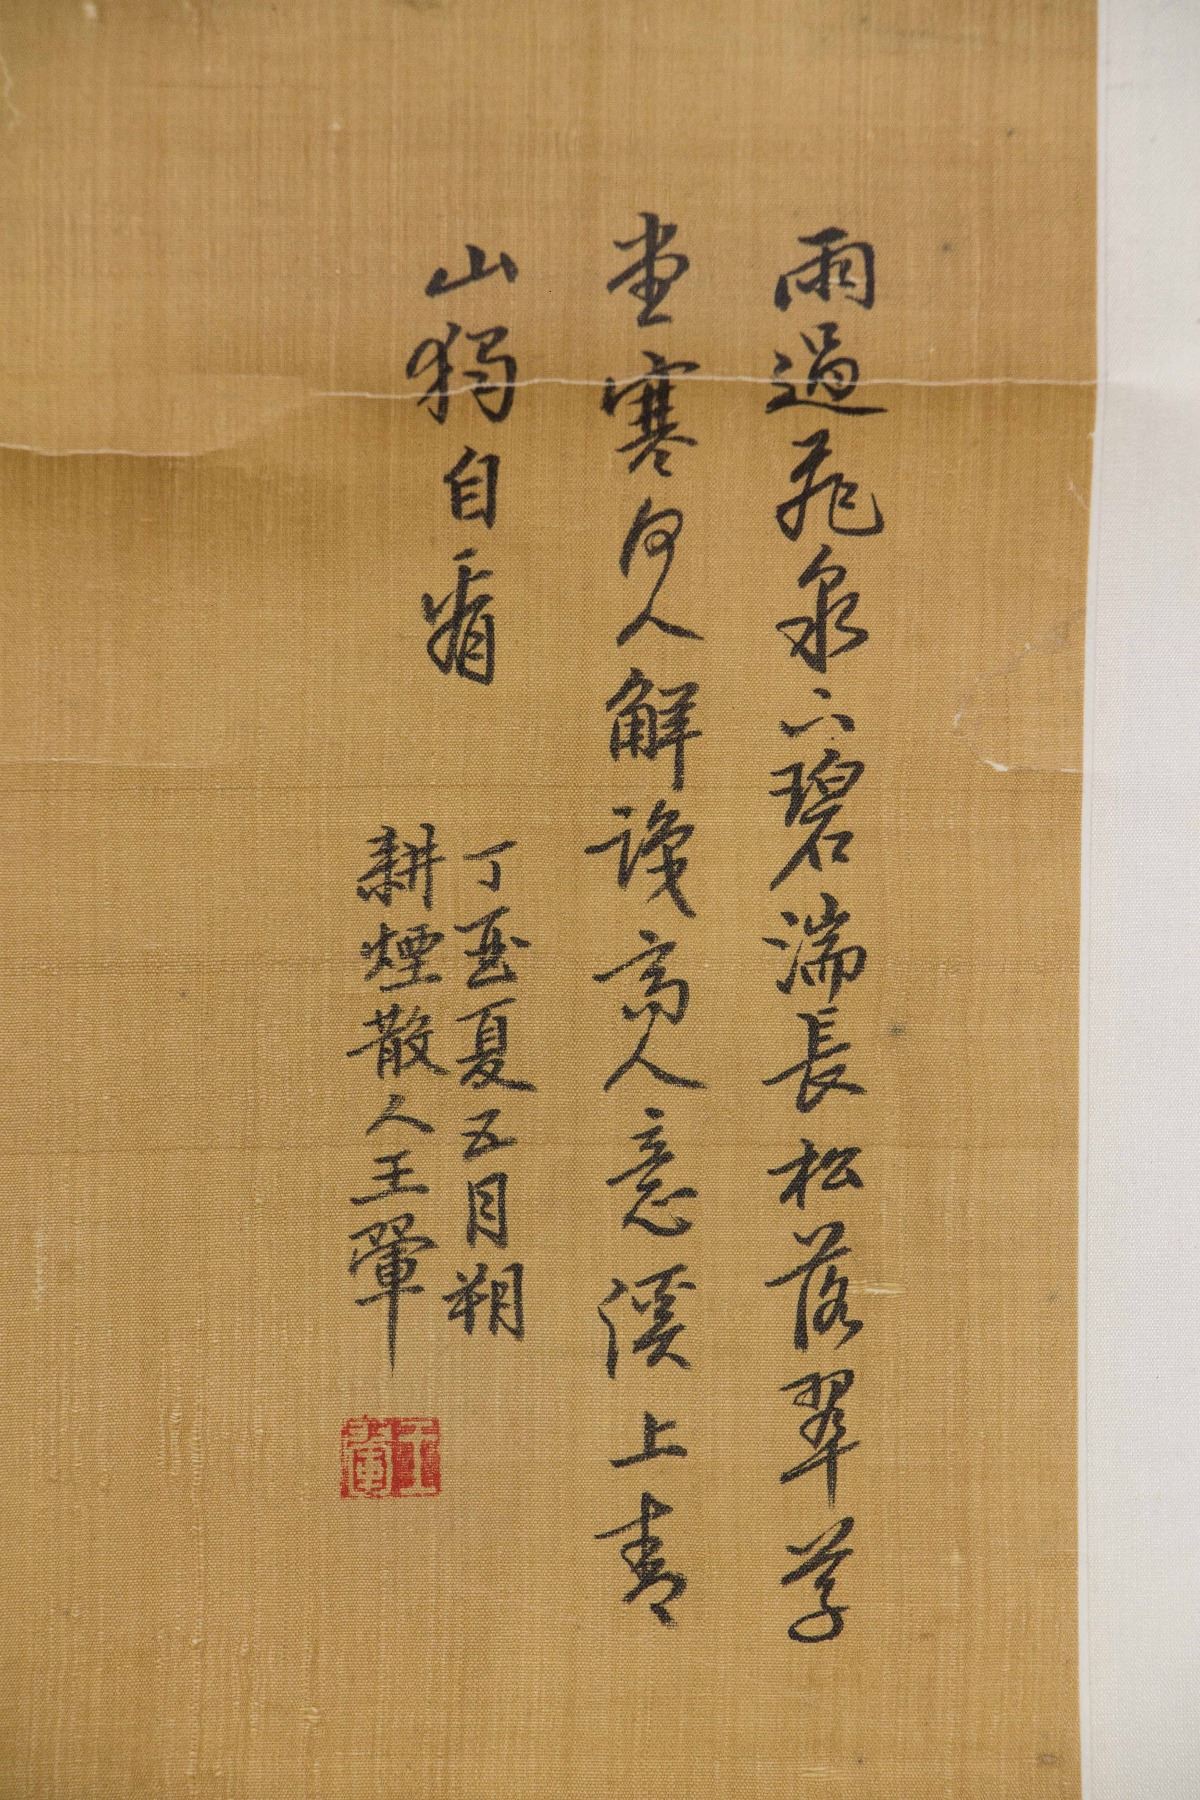 雨過飛泉下碧湍長松落翠草
堂寒何人解識高人意溪上青
山獨自看
丁酉夏五月朔
耕煙散人王翬
王翬